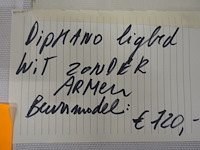 DipMANO ligbed
WiT ZONDER
ARMEN
Beursmodel:
€ 120,-